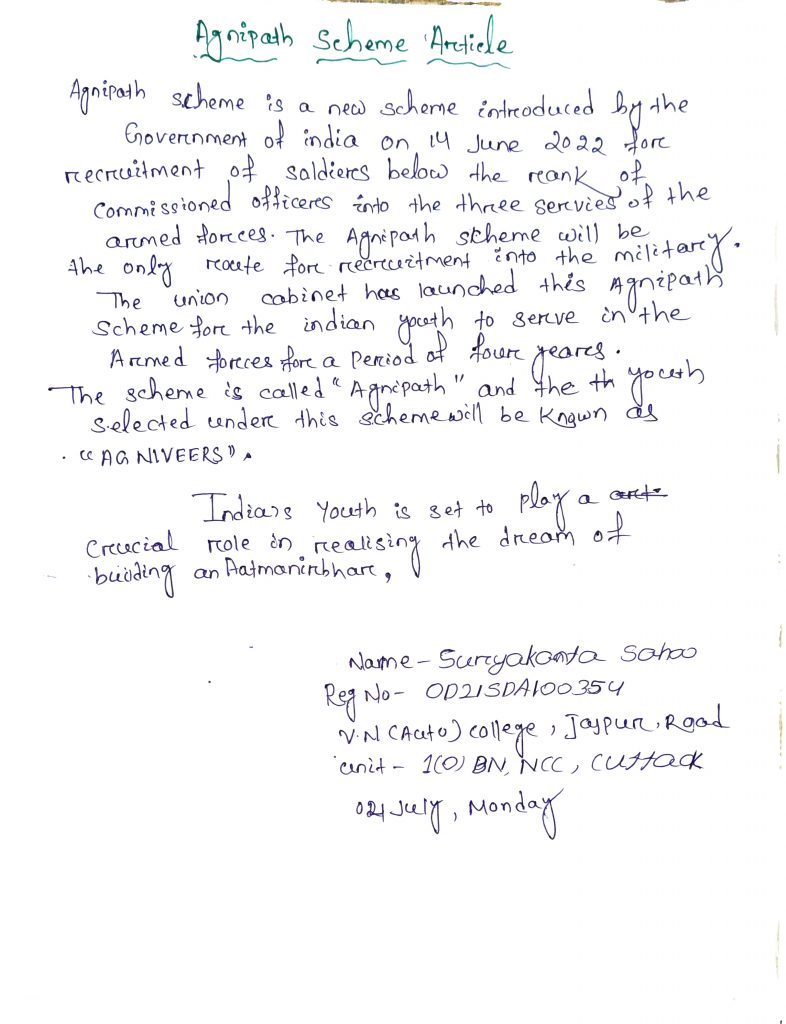 Agnipath Scheme Article
Agnipath scheme is a new scheme introduced by the
Government of india on 14 June 2022 for
recruitment of soldiers below the rank of
Commissioned officers into the three servies of the
armed forces. The Agnipath skheme will be
the only route for recruitment into the military.
The union cabinet has launched this Agnipath
Scheme for the indian youth to serve in the
Armed forces for a Period of four years.
The scheme is called "Agnipath" and the th youth
Selected under this scheme will be Known as
. "AGNIVEERS".
Indians Youth is set to play a
Crucial role in realising the dream of
buiding an Aatmanirbhar,
Name - Suryakanta Sahoo
Reg No - OD21SDA100354
V.N (Auto) college, Jajpur, Road
unit - 1(O) BN, NCC, CUTTACK
July, Monday